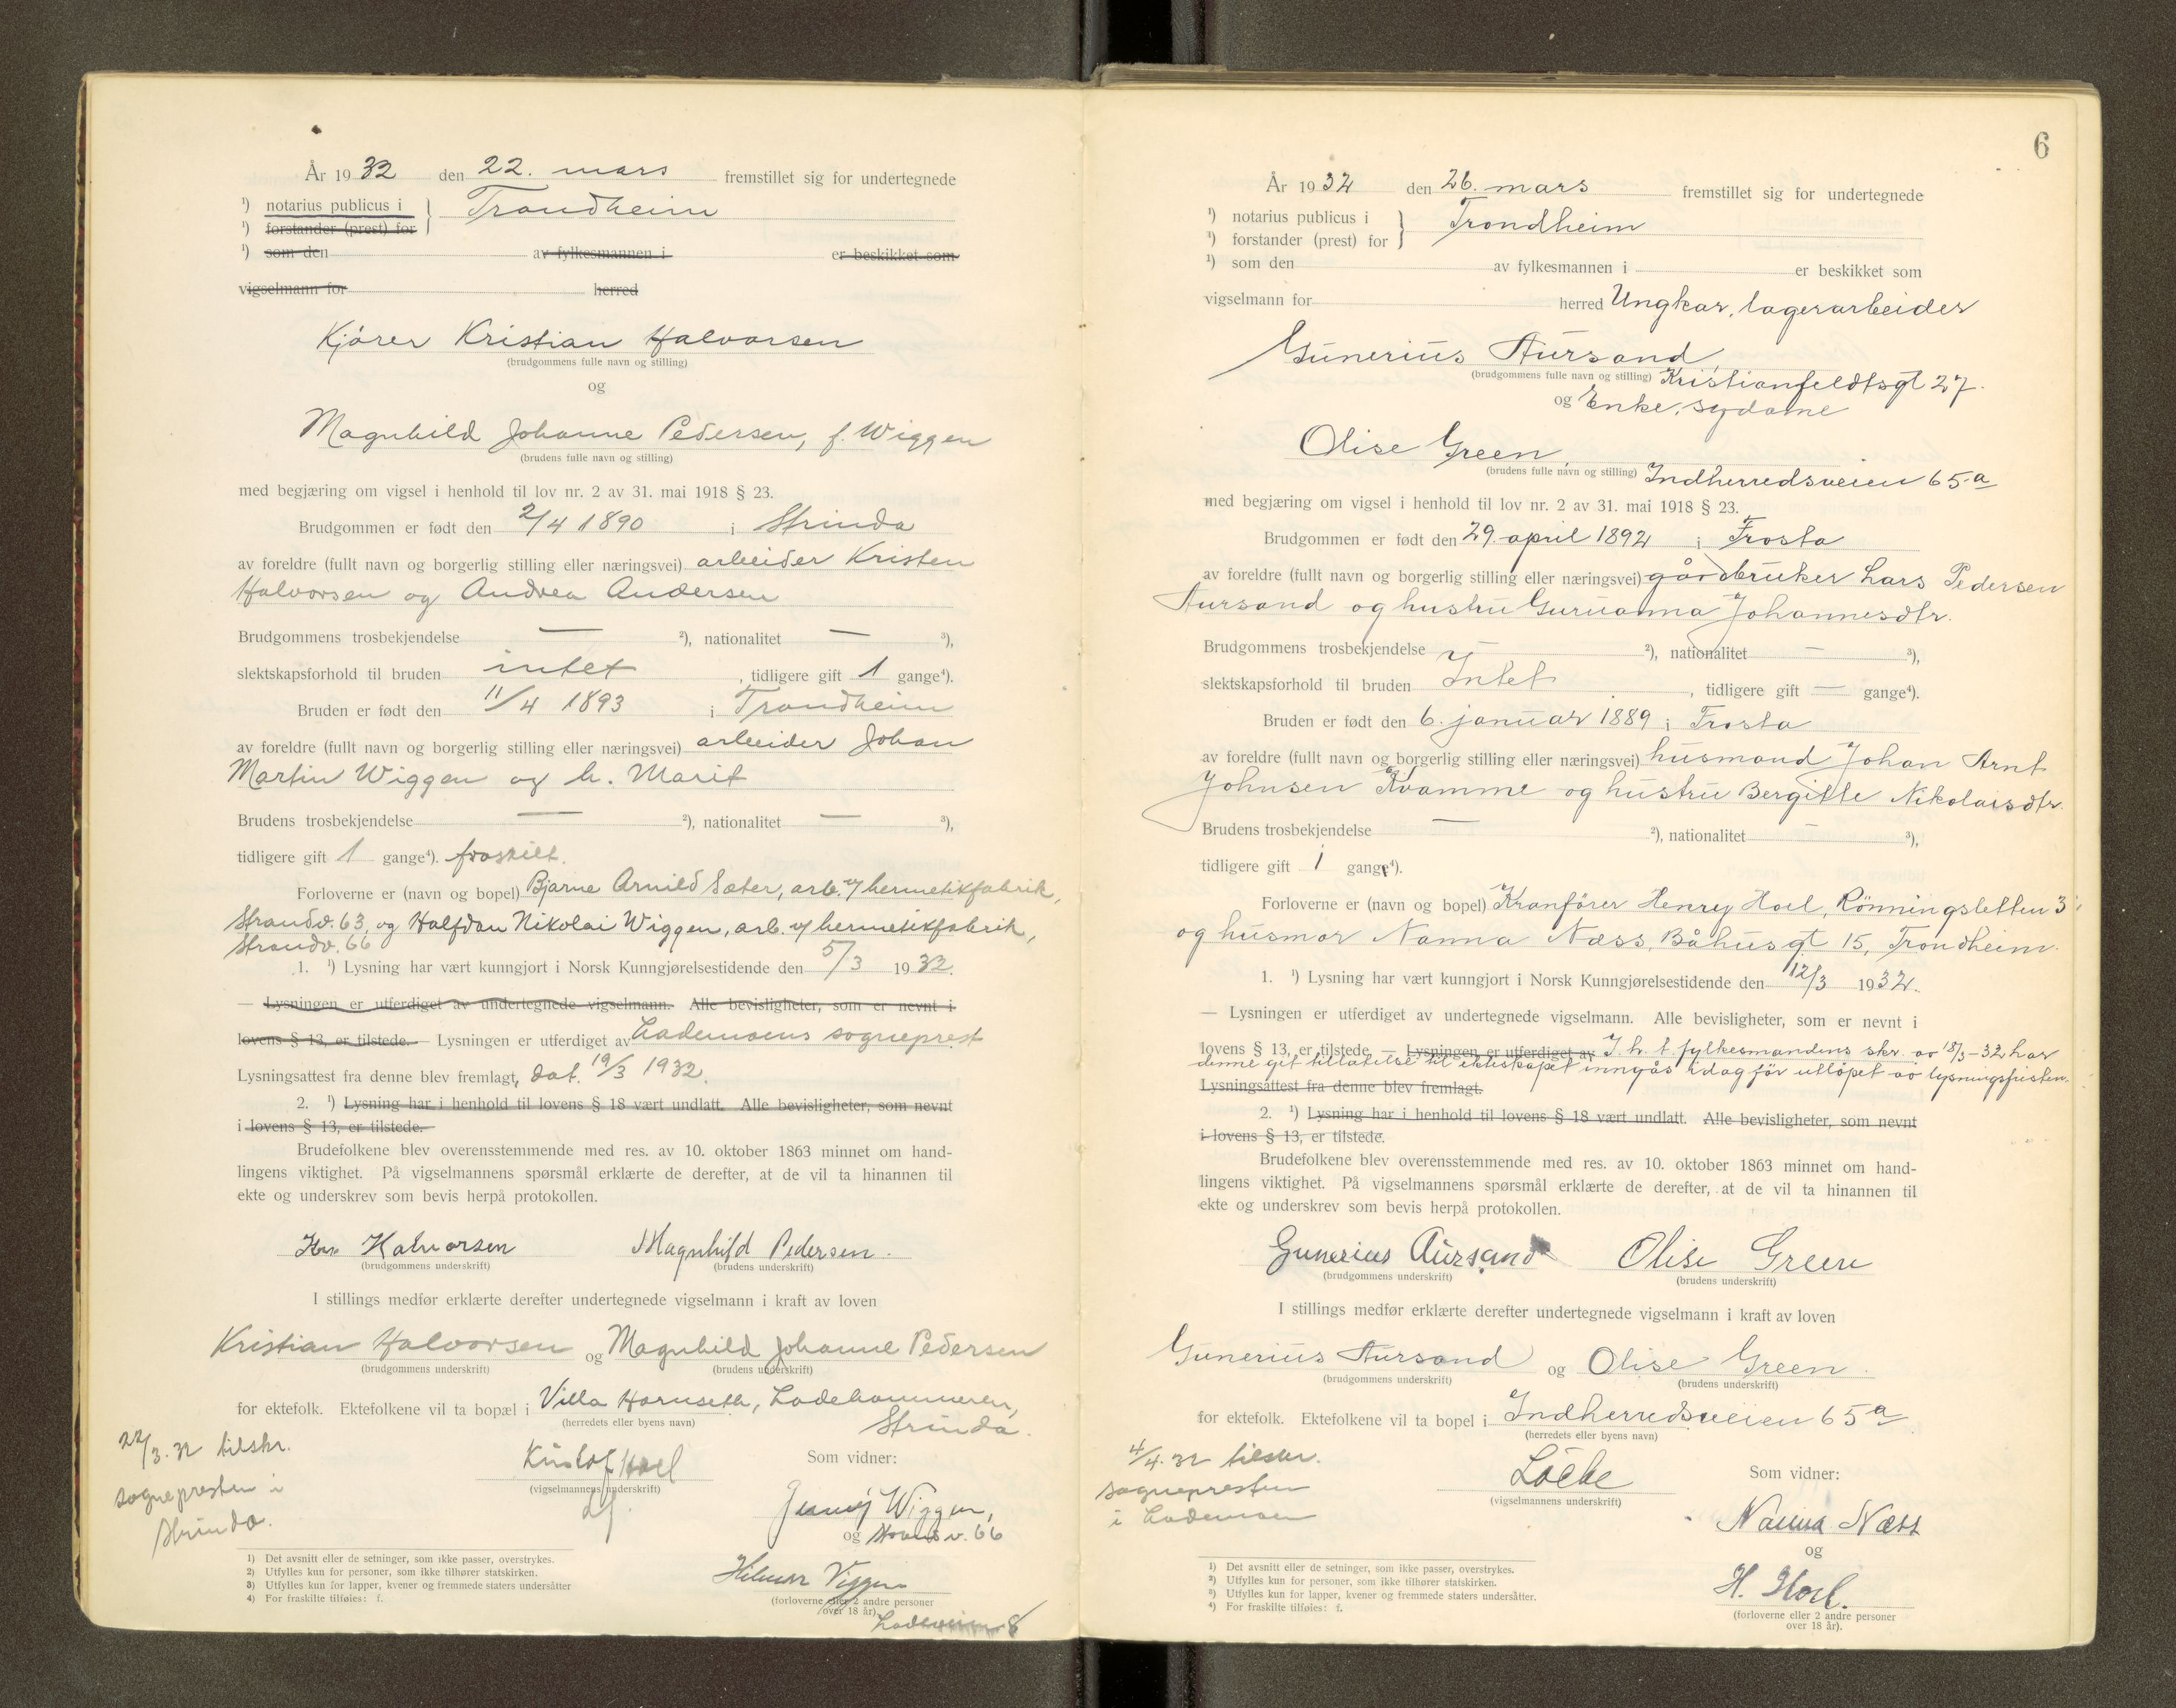 År 1932 den 22. mars fremstillet sig for undertegnede
¹) notarius publicus i } Trondheim
¹) forstander (prest) for
¹) som den av fylkesmannen i er beskikket som
vigselmann for herred
Kjører Kristian Halvorsen
(brudgommens fulle navn og stilling)
og
Magnhild Johanne Pedersen, f. Wiggen
(brudens fulle navn og stilling)
med begjæring om vigsel i henhold til lov nr. 2 av 31. mai 1918 § 23.
Brudgommen er født den 2/4 1890 i Strinda
av foreldre (fullt navn og borgerlig stilling eller næringsvei) arbeider Kristen
Halvorsen og Andrea Andersen
Brudgommens trosbekjendelse — ²), nationalitet — ³),
slektskapsforhold til bruden intet, tidligere gift 1 gange⁴).
Bruden er født den 11/4 1893 i Trondheim
av foreldre (fullt navn og borgerlig stilling eller næringsvei) arbeider Johan
Martin Wiggen og h. Marit
Brudens trosbekjendelse — ²), nationalitet — ³),
tidligere gift 1 gange⁴). fraskilt.
Forloverne er (navn og bopel) Bjarne Arnild Sæter, arb. v/ hermetikfabrik,
Strandv. 63, og Halfdan Nikolai Wiggen, arb. v/ hermetikfabrik,
Strandv. 66
1. ¹) Lysning har vært kunngjort i Norsk Kunngjørelsestidende den 5/3 1932.
— Lysningen er utferdiget av undertegnede vigselmann. Alle bevisligheter, som er nevnt i
lovens § 13, er tilstede. — Lysningen er utferdiget av Lademoens sogneprest
Lysningsattest fra denne blev fremlagt, dat. 19/3 1932.
2. ¹) Lysning har i henhold til lovens § 18 vært undlatt. Alle bevisligheter, som nevnt
i lovens § 13, er tilstede.
Brudefolkene blev overensstemmende med res. av 10. oktober 1863 minnet om hand-
lingens viktighet. På vigselmannens spørsmål erklærte de derefter, at de vil ta hinannen til
ekte og underskrev som bevis herpå protokollen.
Halvorsen Magnhild Pedersen.
(brudgommens underskrift) (brudens underskrift)
I stillings medfør erklærte derefter undertegnede vigselmann i kraft av loven
Kristian Halvorsen og Magnhild Johanne Pedersen
(brudgommens underskrift) (brudens underskrift)
for ektefolk. Ektefolkene vil ta bopæl i Villa Hornseth, Ladehammeren,
(herredets eller byens navn) Strinda.
22/3.32 tilskr.
sognepresten i
Strinda.
(vigselmannens underskrift)
Som vidner:
Jenny Wiggen,
og Strandv. 66
Hilmar Viggen
(forloverne eller 2 andre personer
over 18 år).
Ladeveien 8
1) Det avsnitt eller de setninger, som ikke passer, overstrykes.
2) Utfylles kun for personer, som ikke tilhører statskirken.
3) Utfylles kun for lapper, kvener og fremmede staters undersåtter
4) For fraskilte tilføies: f.
6
År 1932 den 26. mars fremstillet sig for undertegnede
¹) notarius publicus i } Trondheim
¹) forstander (prest) for
¹) som den av fylkesmannen i er beskikket som
vigselmann for herred Ungkar, lagerarbeider
Gunerius Aursand,
(brudgommens fulle navn og stilling) Kristianfeldtsgt 27.
og Enke, sydame
Olise Green,
(brudens fulle navn og stilling) Indherredsveien 65a
med begjæring om vigsel i henhold til lov nr. 2 av 31. mai 1918 § 23.
Brudgommen er født den 29. april 1892 i Frosta
av foreldre (fullt navn og borgerlig stilling eller næringsvei) gårdbruker Lars Pedersen
Aursand og hustru Guruanna Johannesdtr.
Brudgommens trosbekjendelse — ²), nationalitet — ³),
slektskapsforhold til bruden Intet, tidligere gift — gange⁴).
Bruden er født den 6. januar 1889 i Frosta
av foreldre (fullt navn og borgerlig stilling eller næringsvei) husmand Johan Arnt
Johnsen Kvamme og hustru Bergitte Nikolaisdtr.
Brudens trosbekjendelse — ²), nationalitet — ³),
tidligere gift 1 gange⁴).
Forloverne er (navn og bopel) Kranfører Henry Hoel, Rönningsletten 3
og husmor Nanna Næss, Båhusgt 15, Trondheim.
1. ¹) Lysning har vært kunngjort i Norsk Kunngjørelsestidende den 12/3 1932.
— Lysningen er utferdiget av undertegnede vigselmann. Alle bevisligheter, som er nevnt i
lovens § 13, er tilstede — Lysningen er utferdiget av I. h. t. fylkesmandens skr. av 18/3-32 har
denne git tillatelse til ekteskapet inngås idag før utløpet av lysningsfristen.
Lysningsattest fra denne blev fremlagt.
2. ¹) Lysning har i henhold til lovens § 18 vært undlatt. Alle bevisligheter, som nevnt
i lovens § 13, er tilstede.
Brudefolkene blev overensstemmende med res. av 10. oktober 1863 minnet om hand-
lingens viktighet. På vigselmannens spørsmål erklærte de derefter, at de vil ta hinannen til
ekte og underskrev som bevis herpå protokollen.
Gunerius Aursand Olise Green
(brudgommens underskrift) (brudens underskrift)
I stillings medfør erklærte derefter undertegnede vigselmann i kraft av loven
Gunerius Aursand og Olise Green.
(brudgommens underskrift) (brudens underskrift)
for ektefolk. Ektefolkene vil ta bopel i Indherredsveien 65a
(herredets eller byens navn)
4/4.32 tilskr.
sognepresten
i Lademoen
(vigselmannens underskrift)
Som vidner:
Nanna Næss
og
H. Hoel.
(forloverne eller 2 andre personer
over 18 år).
¹) Det avsnitt eller de setninger, som ikke passer, overstrykes.
²) Utfylles kun for personer, som ikke tilhører statskirken.
³) Utfylles kun for lapper, kvener og fremmede staters undersåtter.
⁴) For fraskilte tilføies: f.